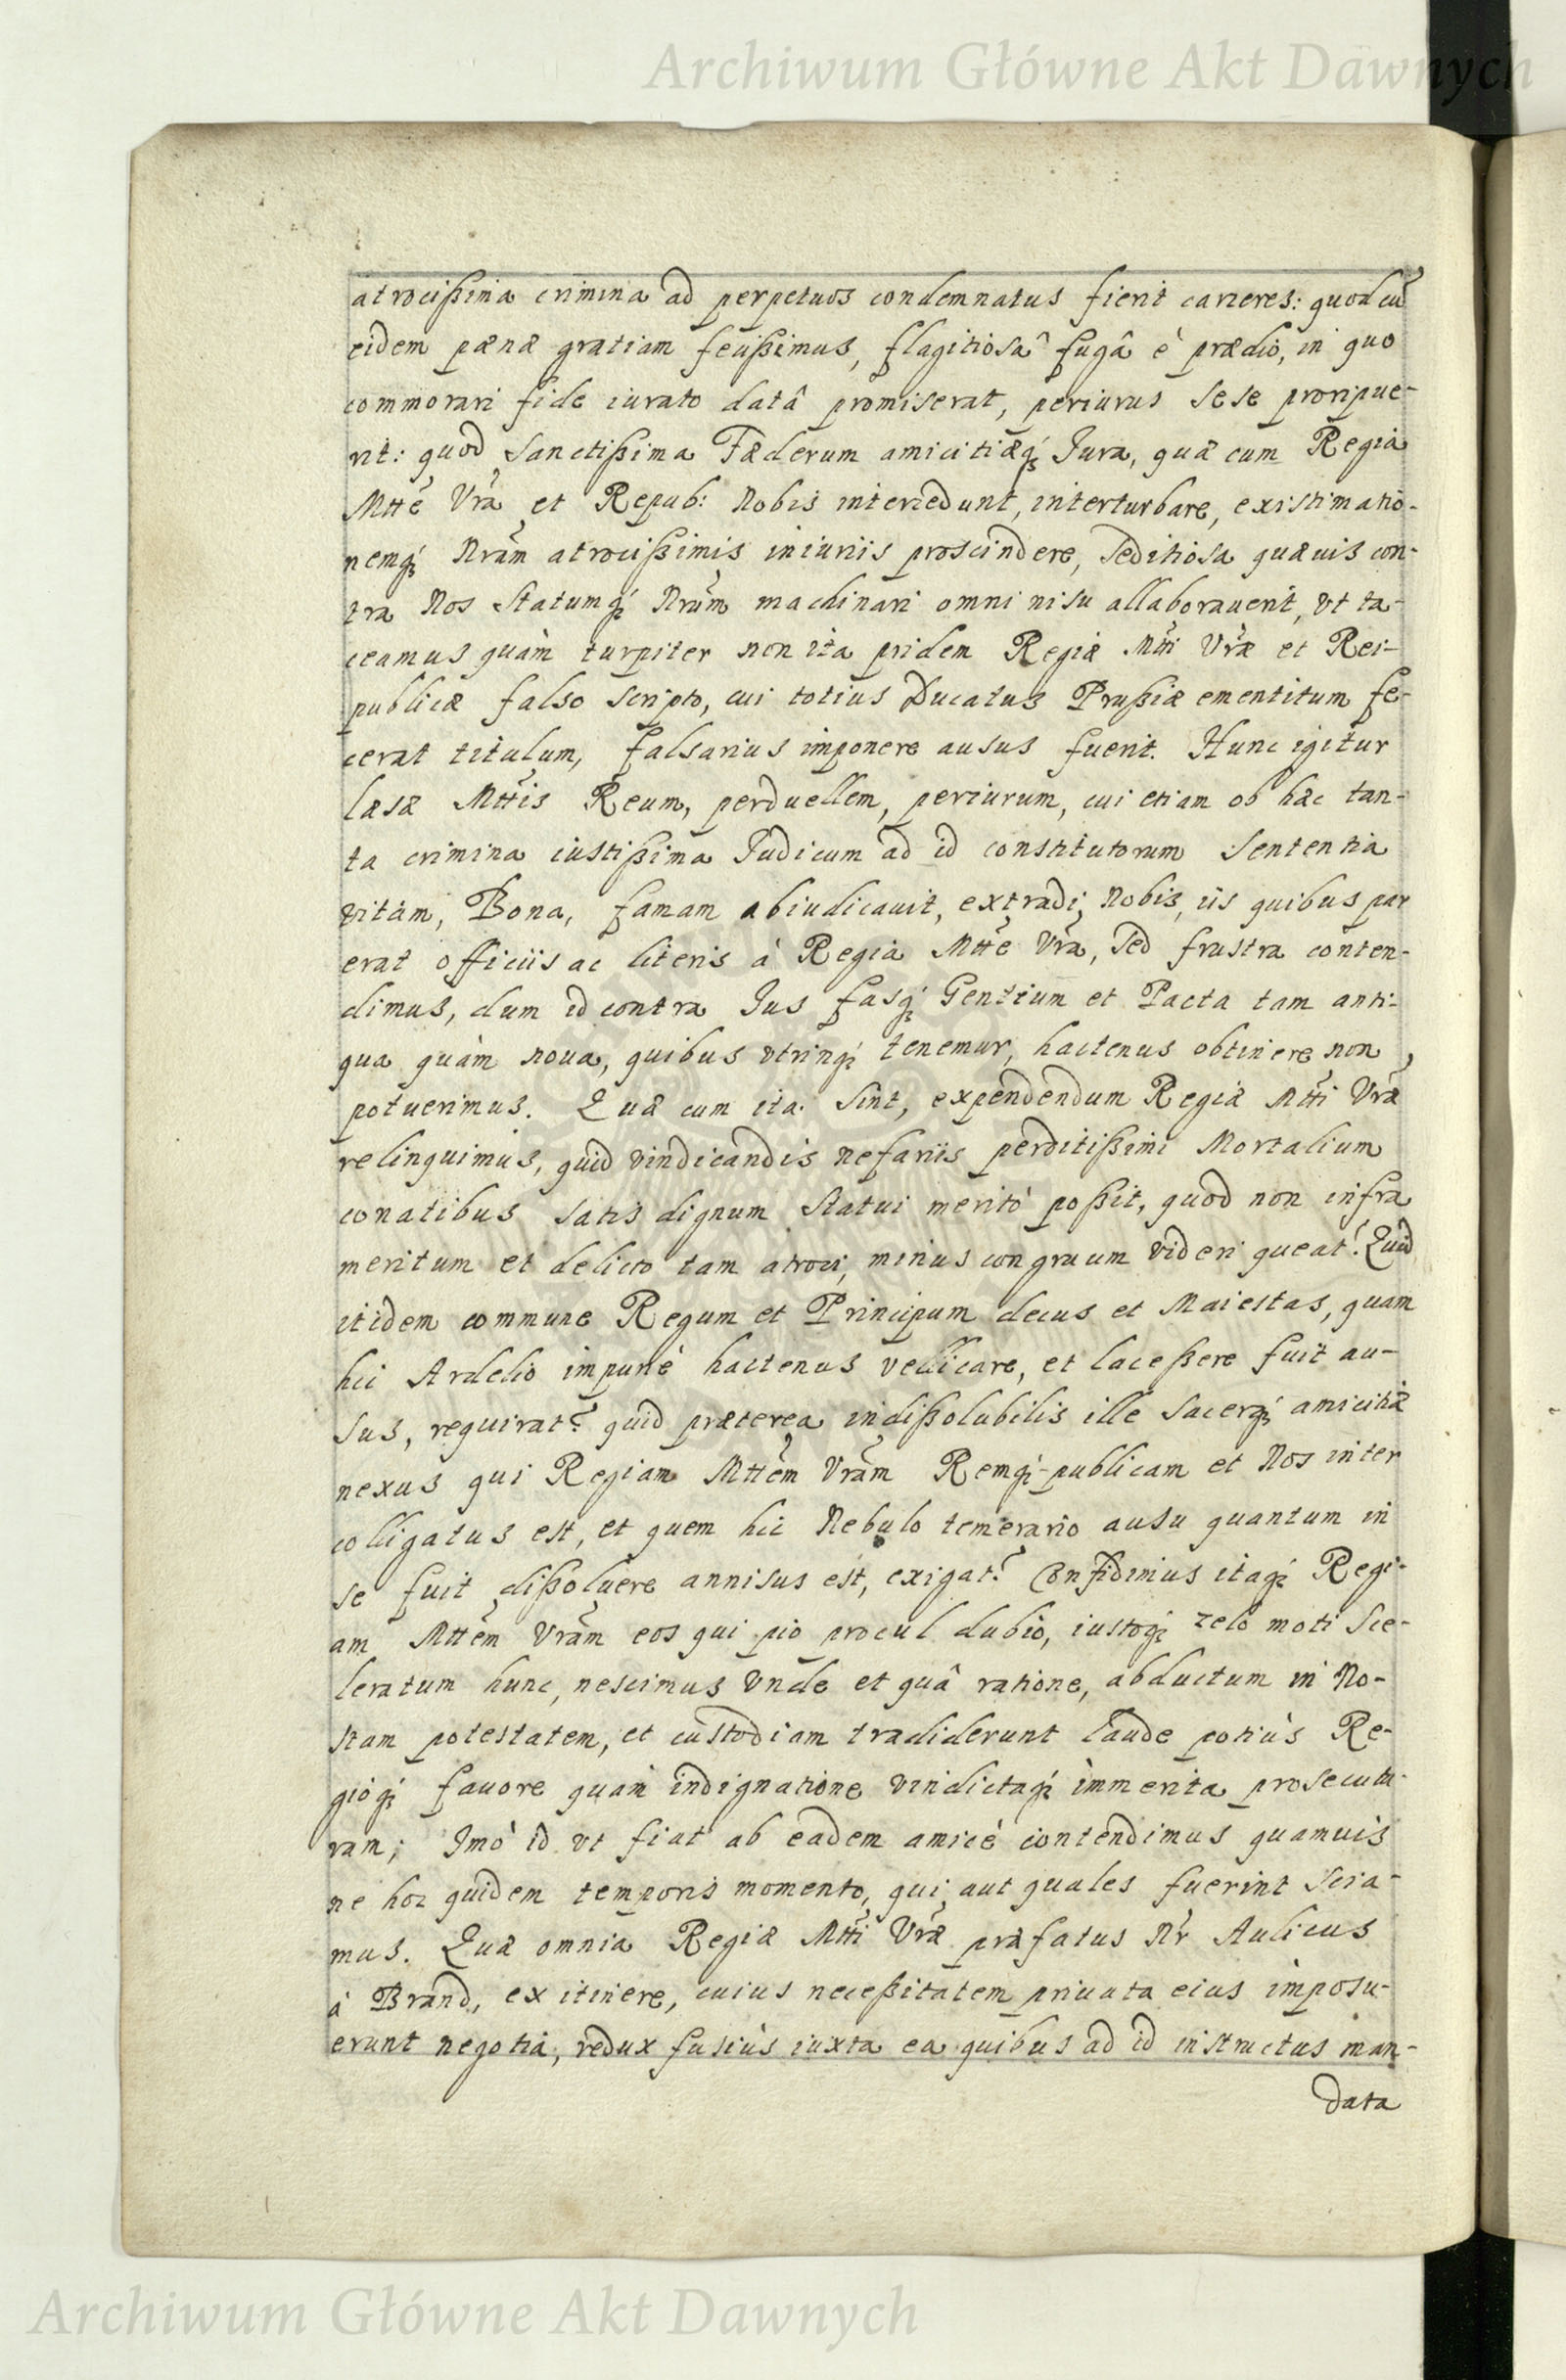 Archiwum Główne Akt Dawnych
atrocißima crimina ad perpetuos condemnatus fierit carceres: quod cũ
eidem pænæ gratiam fecißimus, flagitiosâ fugâ è prædio, in quo
commorari fide iurato datâ promiserat, periurus sese proripue-
rit: quod sanctißima Fæderum amicitiæq; Jura, quæ cum Regia
Mtte Vrã et Repub: Nobis intercedunt, interturbare, existimatio-
nemq; Nrãm atrocißimis iniuriis proscindere, seditiosa quæuis con-
tra Nos Statumq; Nrũm machinari omni nisu allaborauerit, vt ta-
ceamus quàm turpiter non ita pridem Regiæ Mtti Vræ et Rei-
publicæ falso scripto, cui totius Ducatus Prußiæ ementitum fe-
cerat titulum, falsarius imponere ausus fuerit. Hunc igitur
læsæ Mttis Reum, perduellem, periurum, cui etiam ob hæc tan-
ta crimina iustißima Judicum ad id constitutorum sententia
vitam, Bona, famam abiudicauit, extradi Nobis, iis quibus par
erat officiis ac literis à Regia Mtte Vrã, sed frustra conten-
dimus, dum id contra Jus fasq; Gentium et Pacta tam anti-
qua quàm noua, quibus vtrinq; tenemur, hactenus obtinere non
potuerimus. Quæ cum ita sint, expendendum Regiæ Mtti Vræ
relinquimus, quid vindicandis nefariis perditißimi Mortalium
conatibus satis dignum statui meritò poßit, quod non infra
meritum et delicto tam atroci, minus congruum videri queat? Quid
itidem commune Regum et Principum decus et Maiestas, quam
hic Ardelio impunè hactenus vellicare, et laceßere fuit au-
sus, requirat? quid præterea indißolubilis ille sacerq; amicitiæ
nexus qui Regiam Mttem Vrãm Remq;-publicam et Nos inter
colligatus est, et quem hic Nebulo temerario ausu quantum in
se fuit dißoluere annisus est, exigat? Confidimus itaq; Regi-
am Mttem Vrãm eos qui pio procul dubio, iustoq; zelo moti sce-
leratum hunc, nescimus vnde et quâ ratione, abductum in No-
stam potestatem, et custodiam tradiderunt laude potiùs Re-
gioq; fauore quàm indignatione vindictaq; immerita prosecutu-
ram; Imò id vt fiat ab eadem amicè contendimus quamuis
ne hoc quidem temporis momento, qui aut quales fuerint scia-
mus. Quæ omnia Regiæ Mtti Vræ præfatus Nr Aulicus
à Brand, ex itinere, cuius neceßitatem priuata eius imposu-
erunt negotia, redux fusiùs iuxta ea quibus ad id instructus man-
data
Archiwum Główne Akt Dawnych